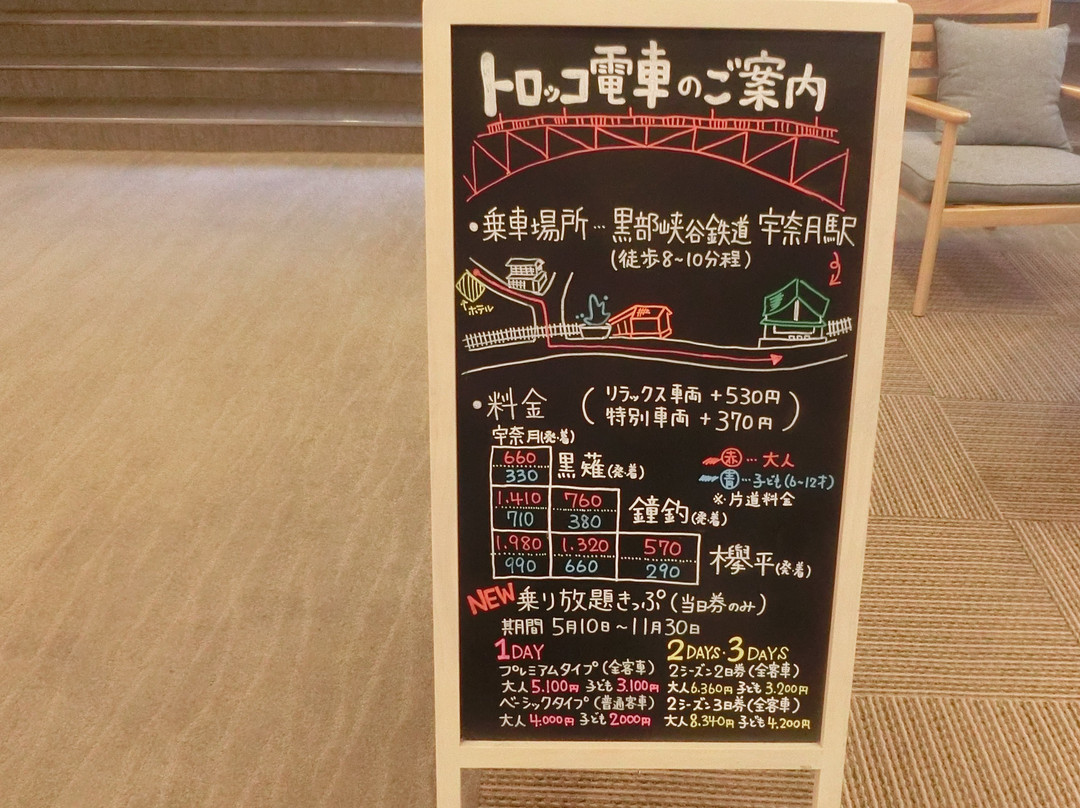 トロッコ電車のご案内
・乗車場所…黒部峡谷鉄道 宇奈月駅
(徒歩8~10分程)
ホテル
・料金
(リラックス車両 +530円
特別車両 +370円)
宇奈月(発・着)
660
330
黒薙(発着)
赤…大人
青…子ども(6~12才)
※片道料金
1.410 760
710 380
鐘釣(発着)
1.980 1.320 570
990 660 290
欅平(発・着)
NEW 乗り放題きっぷ(当日券のみ)
期間 5月10日~11月30日
1DAY
プレミアムタイプ(全客車)
大人5.100円 子ども3.100円
ベーシックタイプ(普通客車)
大人4.000円 子ども2000円
2DAYS・3DAYS
2シーズン2日券(全客車)
大人6.360円 子ども3.200円
2シーズン3日券(全客車)
大人8.340円 子ども4.200円